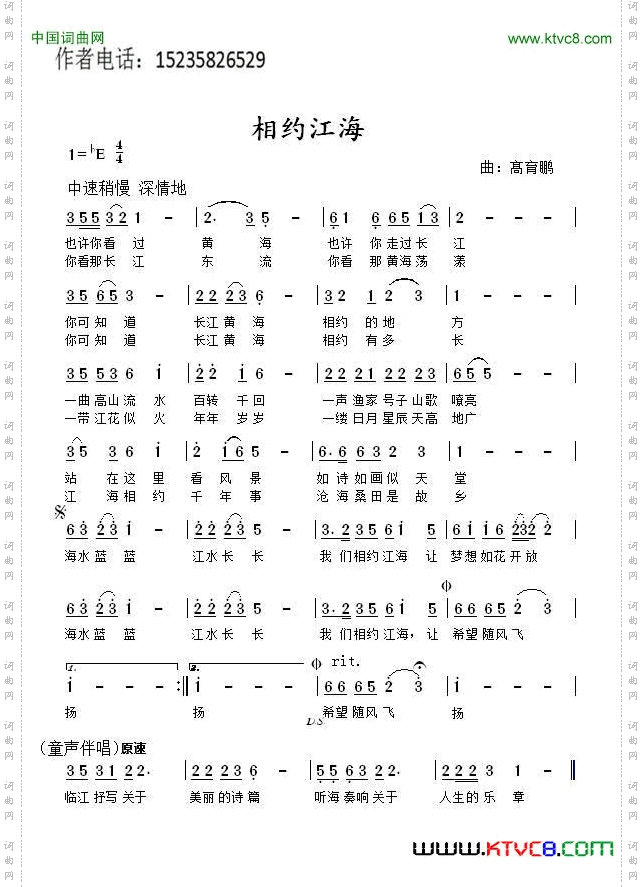 中国词曲网
www.ktvc8.com
作者电话：15235826529
相约江海
1=♭E 4/4
曲：髙育鹏
中速稍慢 深情地
3 5 5 3 2 1 - | 2. 3 5 - | 6 1 6 6 5 1 3 | 2 - - - |
也许你看 过 黄 海 也许 你 走过 长 江
你看那长 江 东 流 你看 那 黄海 荡 漾
3 5 6 5 3 - | 2 2 2 3 6 - | 3 2 1 2 3 | 1 - - - |
你可 知 道 长江 黄 海 相约 的 地 方
你可 知 道 长江 黄 海 相约 有 多 长
3 5 5 3 6 1 | 2 2 1 6 | 2 2 2 1 2 2 2 3 | 6 5 5 - - |
一曲 高山 流 水 百转 千 回 一声 渔家 号子 山歌 嘹亮
一带 江花 似 火 年年 岁 岁 一缕 日月 星辰 天高 地广
3 5 3 6 1 | 2 1 6 5 - | 6. 6 6 3 2 3 | 2 - - - |
站 在 这 里 看 风 景 如 诗 如画 似 天 堂
江 海 相 约 千 年 事 沧 海 桑田 是 故 乡
6 3 2 3 1 - | 2 2 2 3 5 - | 3. 2 3 5 6 1 5 | 6 1 1 6 2 3 2 2 |
海水 蓝 蓝 江水 长 长 我 们 相约 江海 让 梦想 如花 开 放
6 3 2 3 1 - | 2 2 2 3 5 - | 3. 2 3 5 6 1 5 | 6 6 6 5 2 3 |
海水 蓝 蓝 江水 长 长 我 们 相约 江海，让 希望 随风 飞
1. 2. rit.
1 - - - :‖ 1 - - - | 6 6 6 5 2 3 | 1 - - - |
扬 扬 希望 随风 飞 扬
D.S.
（童声伴唱）原速
3 5 3 1 2 2. | 2 2 2 3 6 - | 5 5 6 3 2 2. | 2 2 2 3 1 - ‖
临江 抒写 关于 美丽 的诗 篇 听海 奏响 关于 人生的 乐 章
www.KTVC8.COM
词曲网